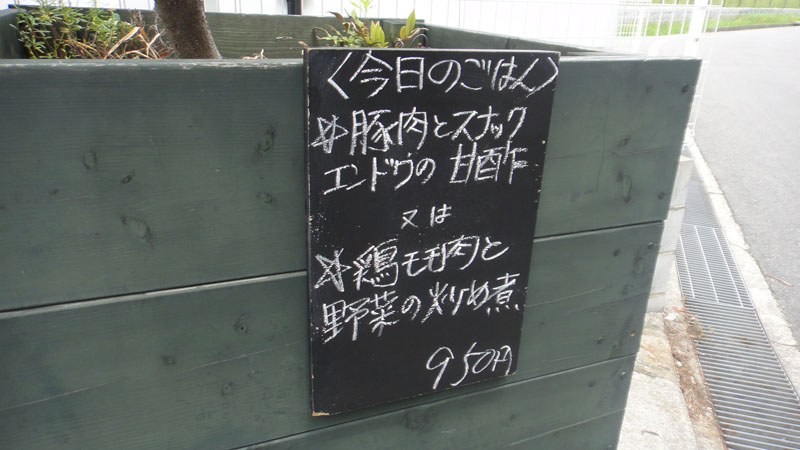 〈今日のごはん〉
☆豚肉とスナック
エンドウの 甘酢
又は
☆鶏モモ肉と
野菜の炒め煮
950円